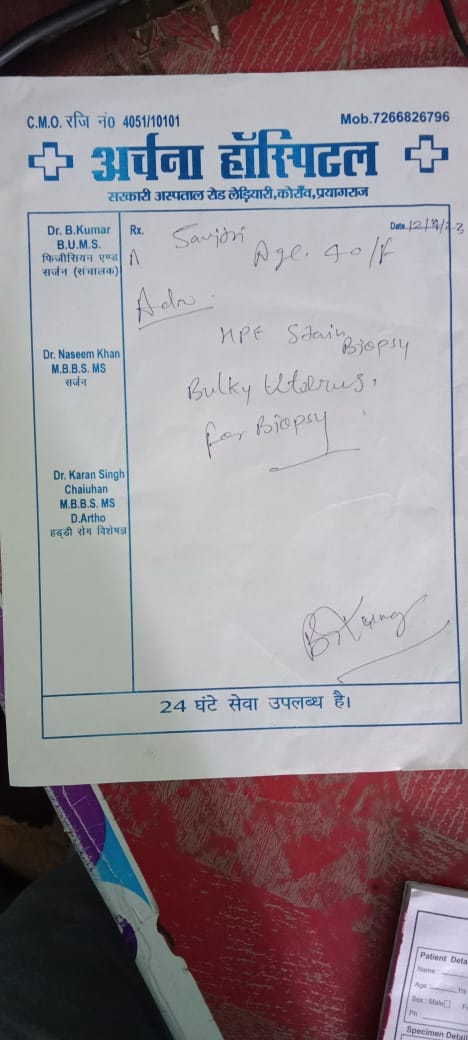 C.M.O. रजि नं0 4051/10101
Mob.7266826796
अर्चना हॉस्पिटल
सरकारी अस्पताल रोड लेड़ियारी,कोराँव,प्रयागराज
Dr. B.Kumar
B.U.M.S.
फिजीसियन एण्ड
सर्जन (संचालक)
Dr. Naseem Khan
M.B.B.S. MS
सर्जन
Dr. Karan Singh
Chaiuhan
M.B.B.S. MS
D.Artho
हड्डी रोग विशेषज्ञ
Rx.
Date 12/9/23
Savitri
Age. 40/F
Adv.
HPE Stain
Biopsy
Bulky Uterus.
for Biopsy
24 घंटे सेवा उपलब्ध है।
Patient Deta
Name :
Age
Yrs
Sex : Male
Ph :
Specimen Detail